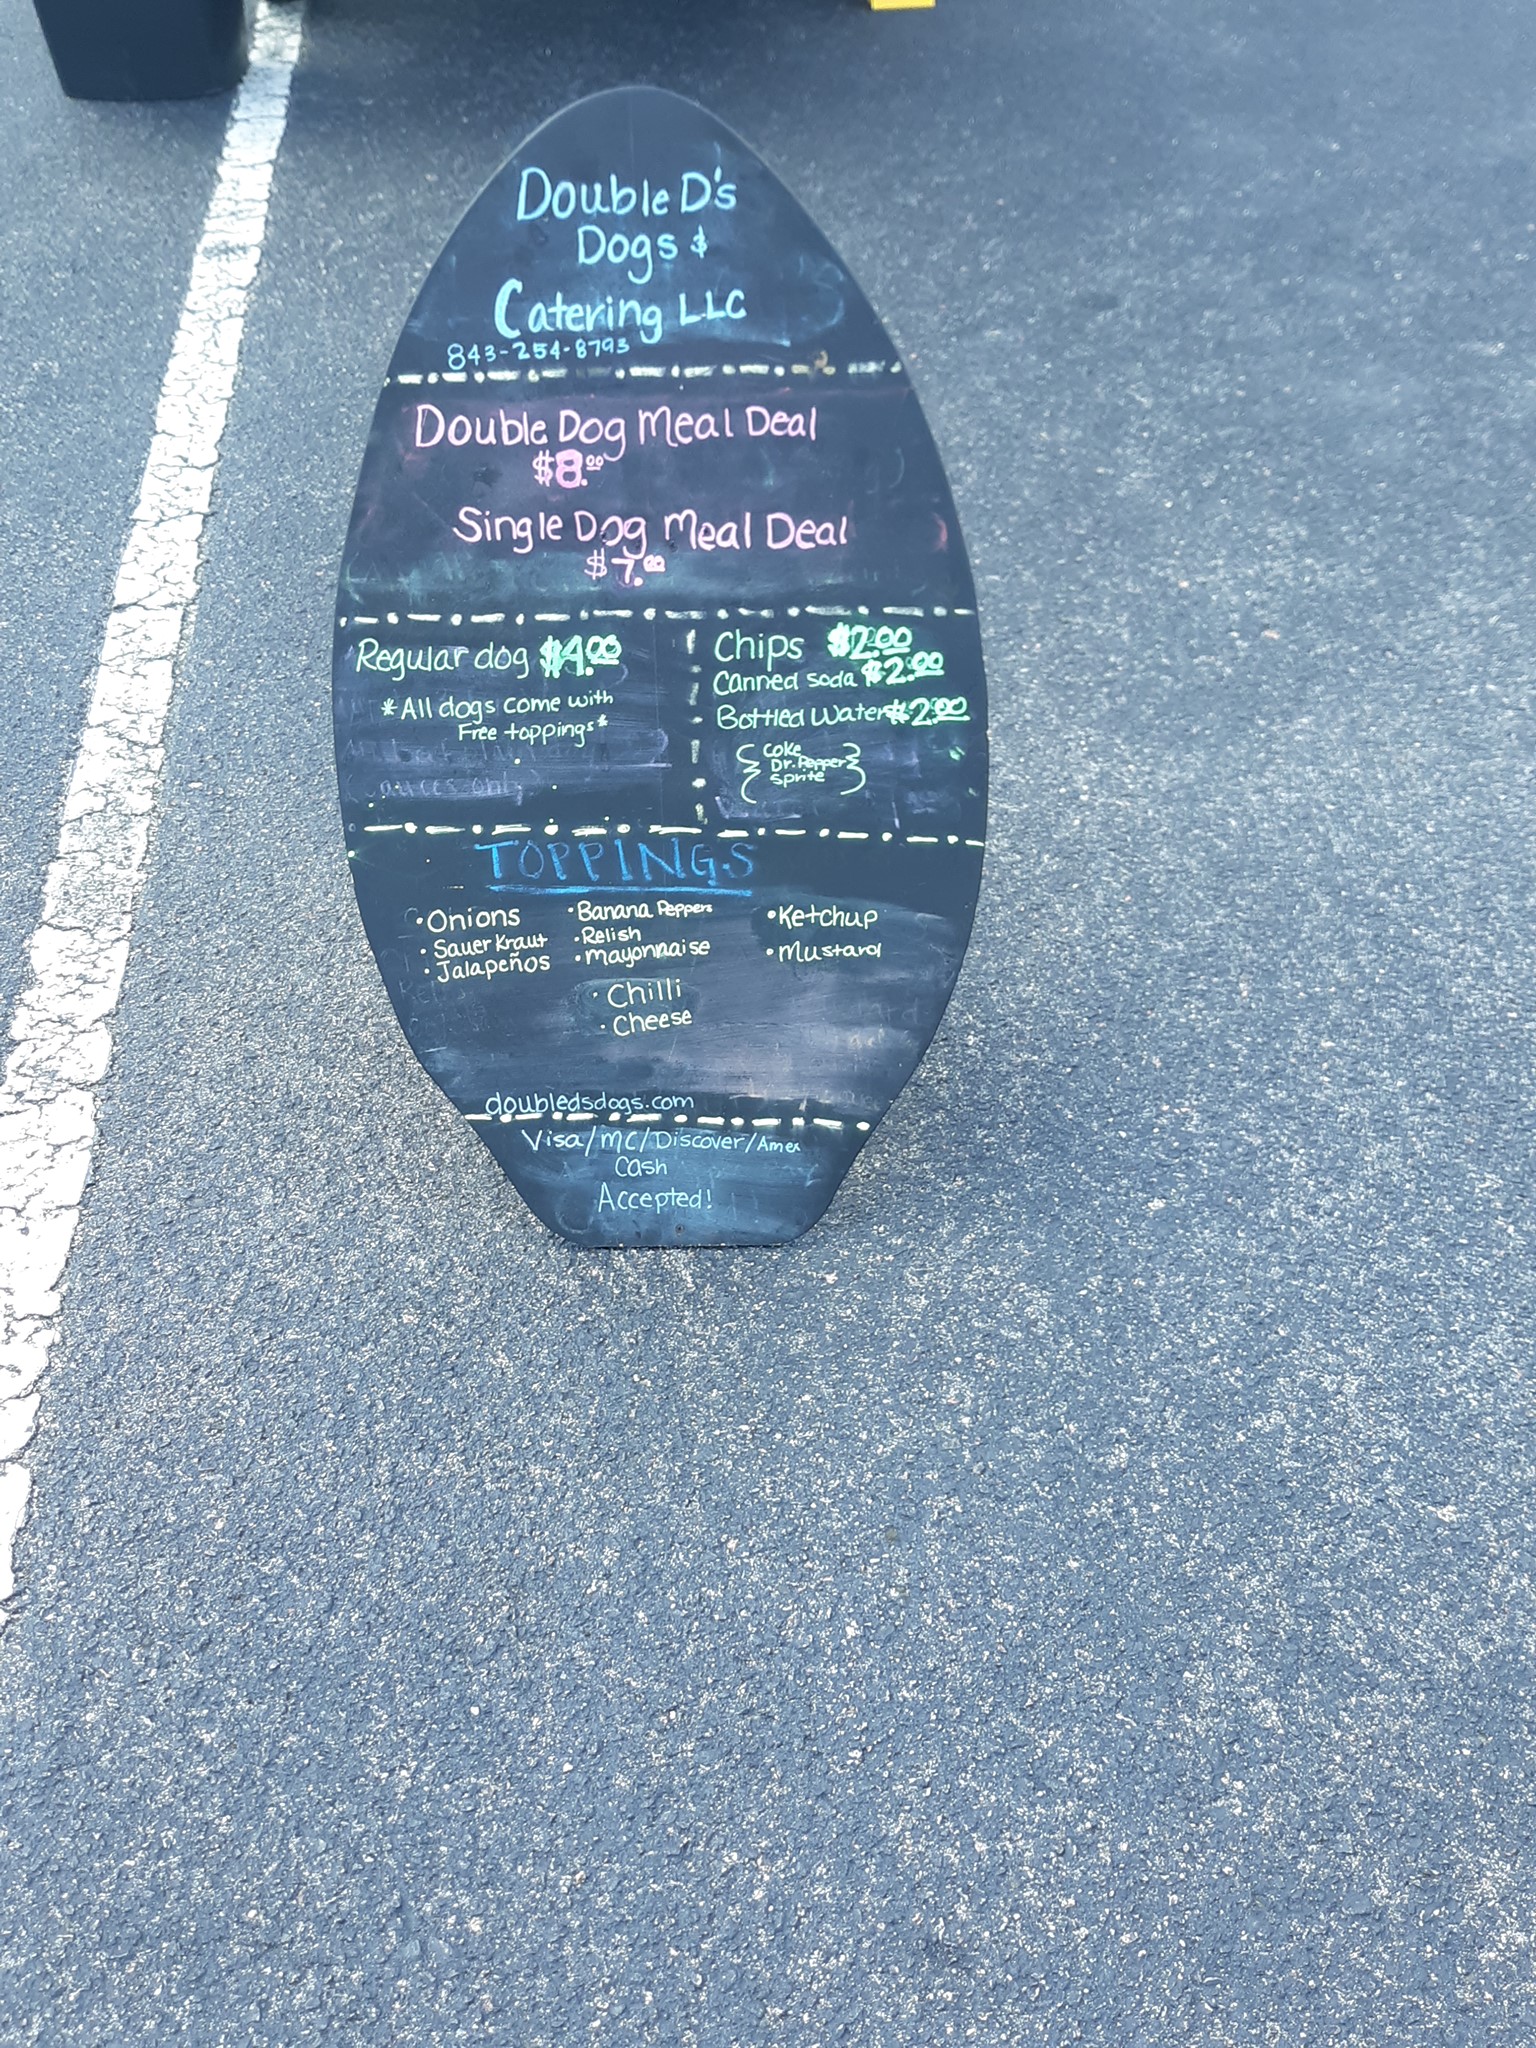 Double D's
Dogs &
Catering LLC
843-254-8793
Double Dog Meal Deal
$8.00
Single Dog Meal Deal
$7.00
Regular dog $4.00
*All dogs come with
Free toppings*
Chips $2.00
Canned soda $2.00
Bottled Water $2.00
{ Coke
Dr. Pepper
Sprite }
TOPPINGS
• Onions
• Sauer Kraut
• Jalapeños
• Banana Peppers
• Relish
• Mayonnaise
• Ketchup
• Mustard
• Chilli
• Cheese
doubledsdogs.com
Visa/MC/Discover/Amex
Cash
Accepted!